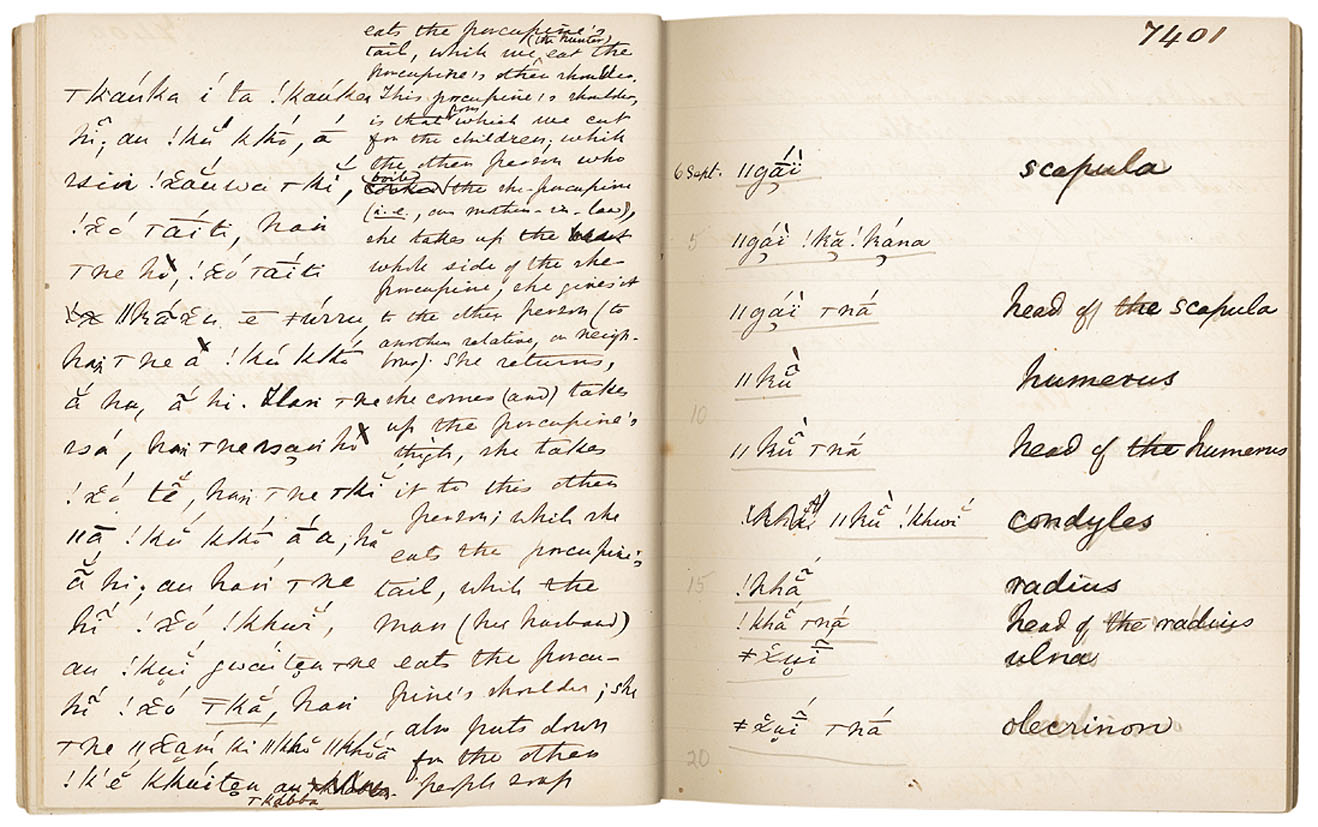 ⊤kaúka í ta !kaúka
hĭ̃, au !kŭ́ kkó, á
!χó ⊤aíti, han
⊤ne hi, !χó ⊤aíti
han ⊤ne á !kŭ́ kkó
ắ ha, ắ hi. Han ⊤ne
!χó tĕ̃, han ⊤ne ⊤kĭ
//ā !kŭ́ kkó áa, hă
ẵ hi; au han ⊤ne
hĭ̃ !χó !khwĭ,
au !kuĭ gwáiten ⊤ne
hĭ̃ !χó ⊤kắ, han
eats the porcupine's
tail, while we (the hunter) eat the
porcupine's other shoulder.
This porcupine's shoulder,
is that from which we cut
for the children; while
the other person who
boiled the she-porcupine
(i.e., our mother-in-law),
she takes up the
whole side of the she-
porcupine, she gives it
to the other person (to
another relative, or neigh-
bour). She returns,
she comes (and) takes
up the porcupine's
thigh, she takes
it to this other
person; while she
eats the porcupine's
tail, while the
man (her husband)
eats the porcu-
pine's shoulder; she
also puts down
for the other
people soup
7401
6 Sept. //gáì scapula
5 //gáì !kă !kána
//gáì ⊤ná head of the scapula
//kŭ̀ humerus
10
//kŭ̀ ⊤ná head of the humerus
//kŭ̀ !khwĭ condyles
15 !khắ radius
!khắ ⊤ná head of the radius
≠χuĭ̃ ulna
≠χuĭ̃ ⊤ná olecrinon
20